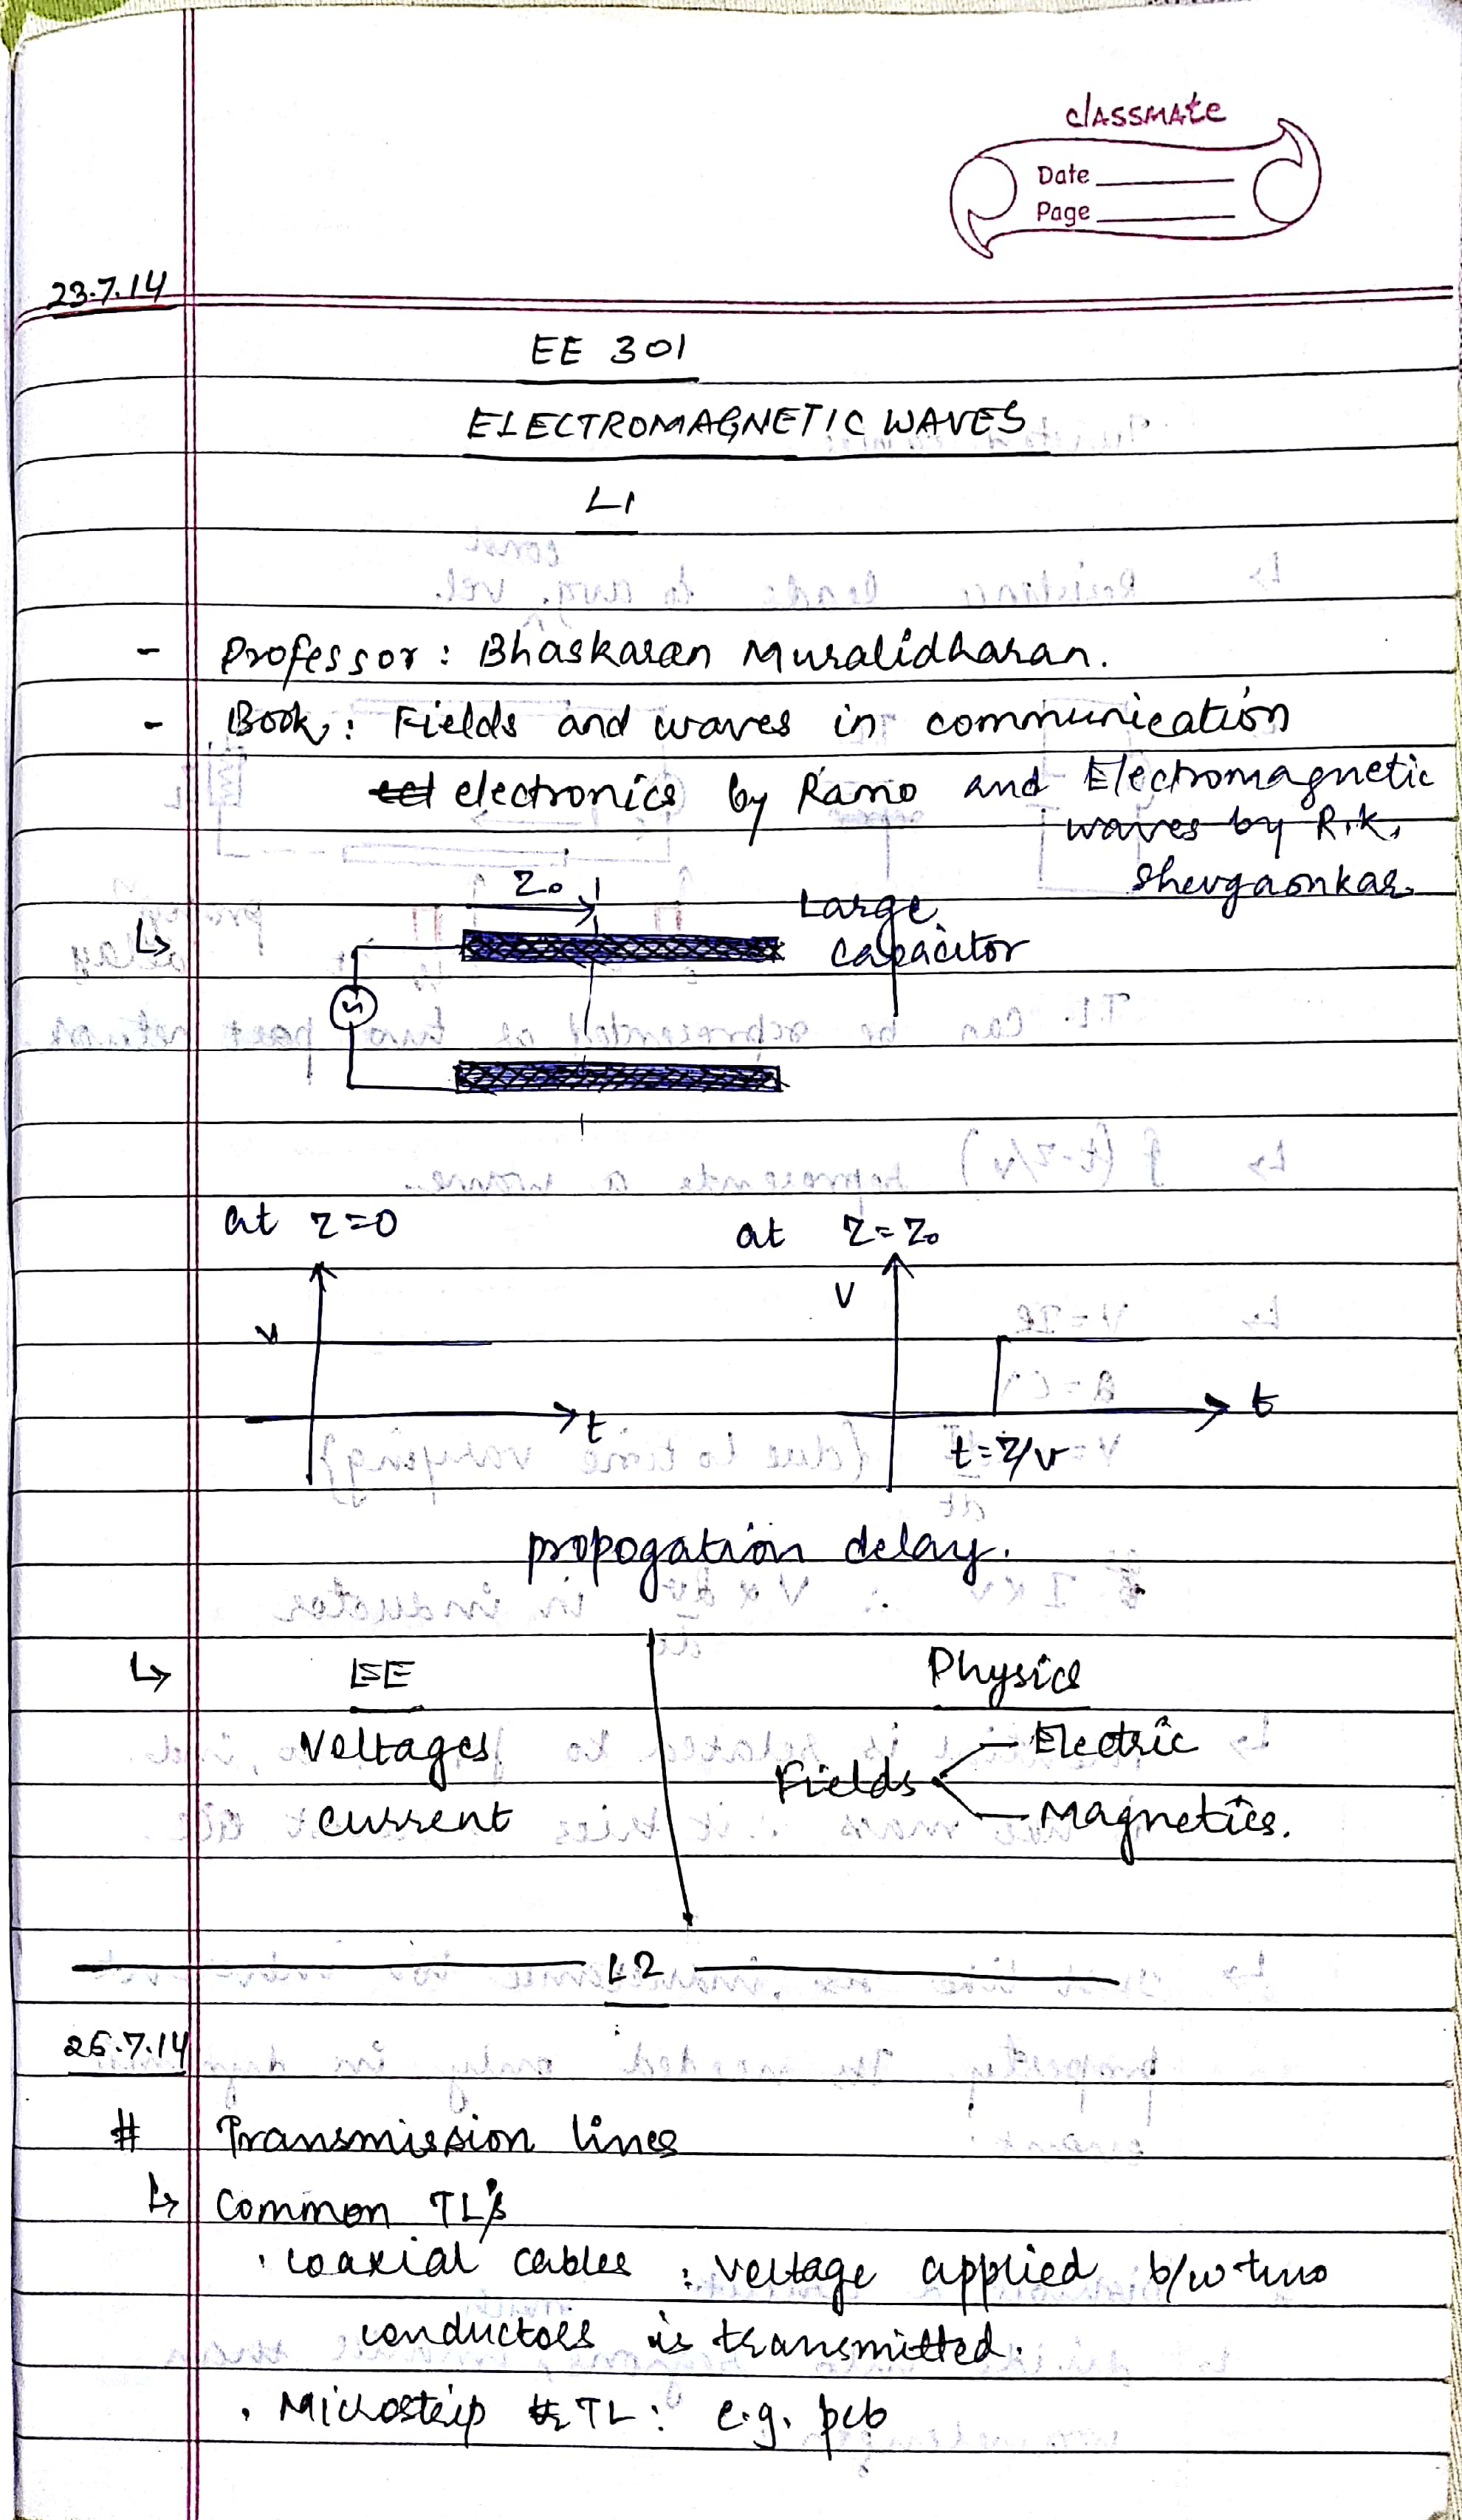 classmate
Date
Page
23.7.14
EE 301
ELECTROMAGNETIC WAVES
L1
- Professor : Bhaskaran Muralidharan.
- Book : Fields and waves in communication
electronics by Ramo and Electromagnetic
waves by R.K.
Shevgaonkar
Z₀
Large
capacitor
at z=0
at z=z₀
V
V
t
t
t=z/v
propogation delay.
↳ EE
Physics
Voltages
Electric
Fields
current
Magnetics.
L2
25.7.14
# Transmission lines
↳ Common TL's
. coaxial cables : voltage applied b/w two
conductors is transmitted.
. Microstrip TL : e.g. pcb